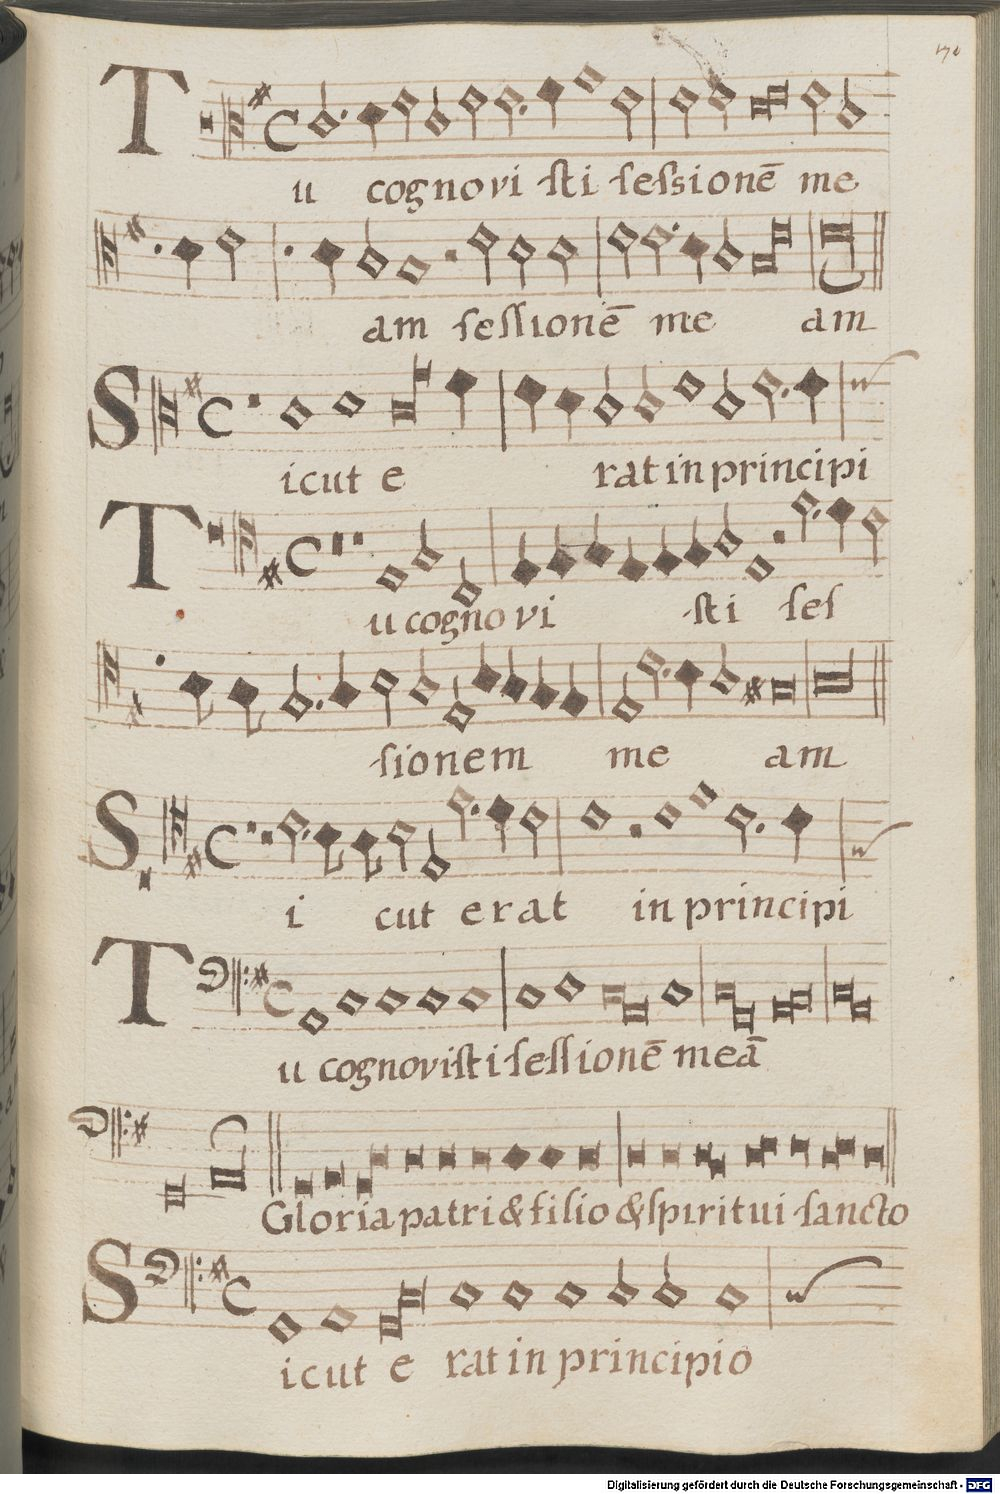 170
Tu cognovisti sessionē me
am sessionē me am
Sicut e rat in principi
Tu cognovi sti ses
sionem me am
Si cut erat in principi
Tu cognovisti sessionē meā
Gloria patri & filio & spiritui sancto
Sicut e rat in principio
Digitalisierung gefördert durch die Deutsche Forschungsgemeinschaft - DFG